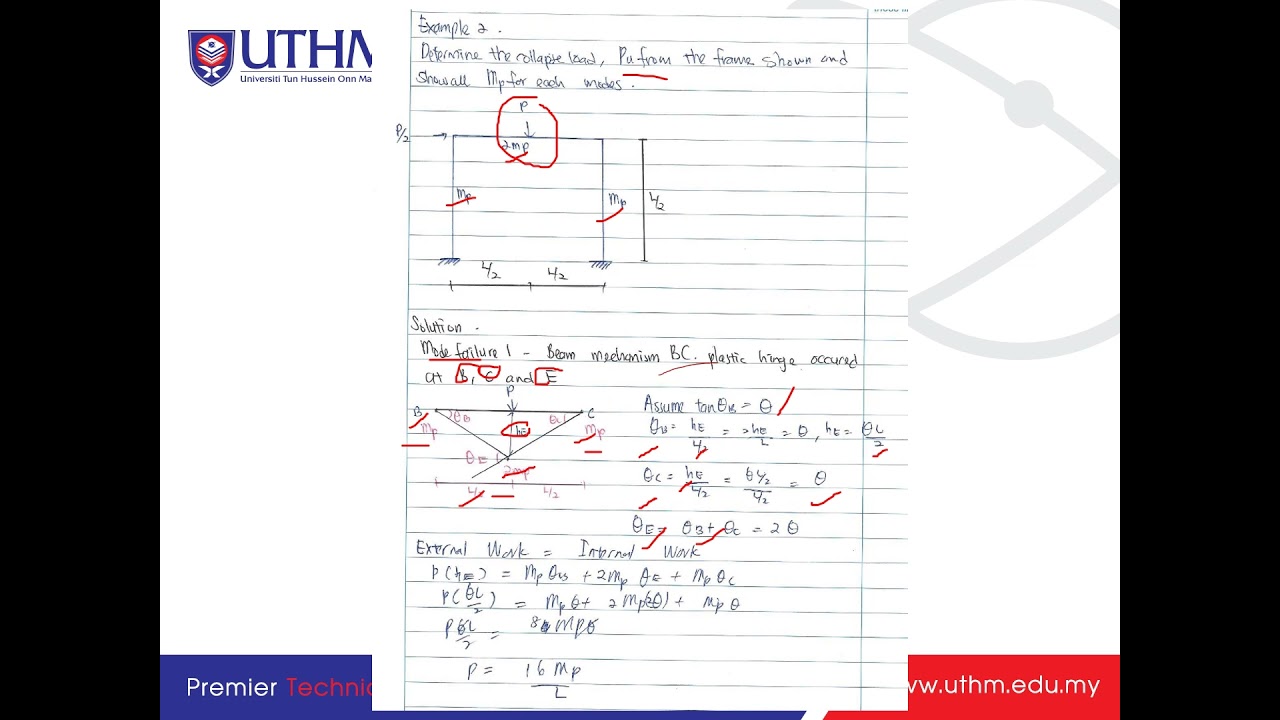 UTHM
Universiti Tun Hussein Onn Ma
Example 2.
Determine the collapse load, Pu from the frame shown and
show all Mp for each modes.
P
P/2
2Mp
Mp
Mp
L/2
L/2
L/2
Solution.
Mode failure 1 - Beam mechanism BC. plastic hinge occured
at B, C and E
P
B
θB
hE
θC
C
Mp
Mp
θE
2Mp
L/2
L/2
Assume tan θB = θ
θB = hE/L/2 = 2hE/L = θ, hE = θL/2
θC = hE/L/2 = θL/2/L/2 = θ
θE = θB + θC = 2θ
External Work = Internal Work
P(hE) = Mp θB + 2Mp θE + Mp θC
P(θL/2) = Mp θ + 2Mp(2θ) + Mp θ
PθL/2 = 8 Mpθ
P = 16 Mp/L
Premier Technic
ww.uthm.edu.my